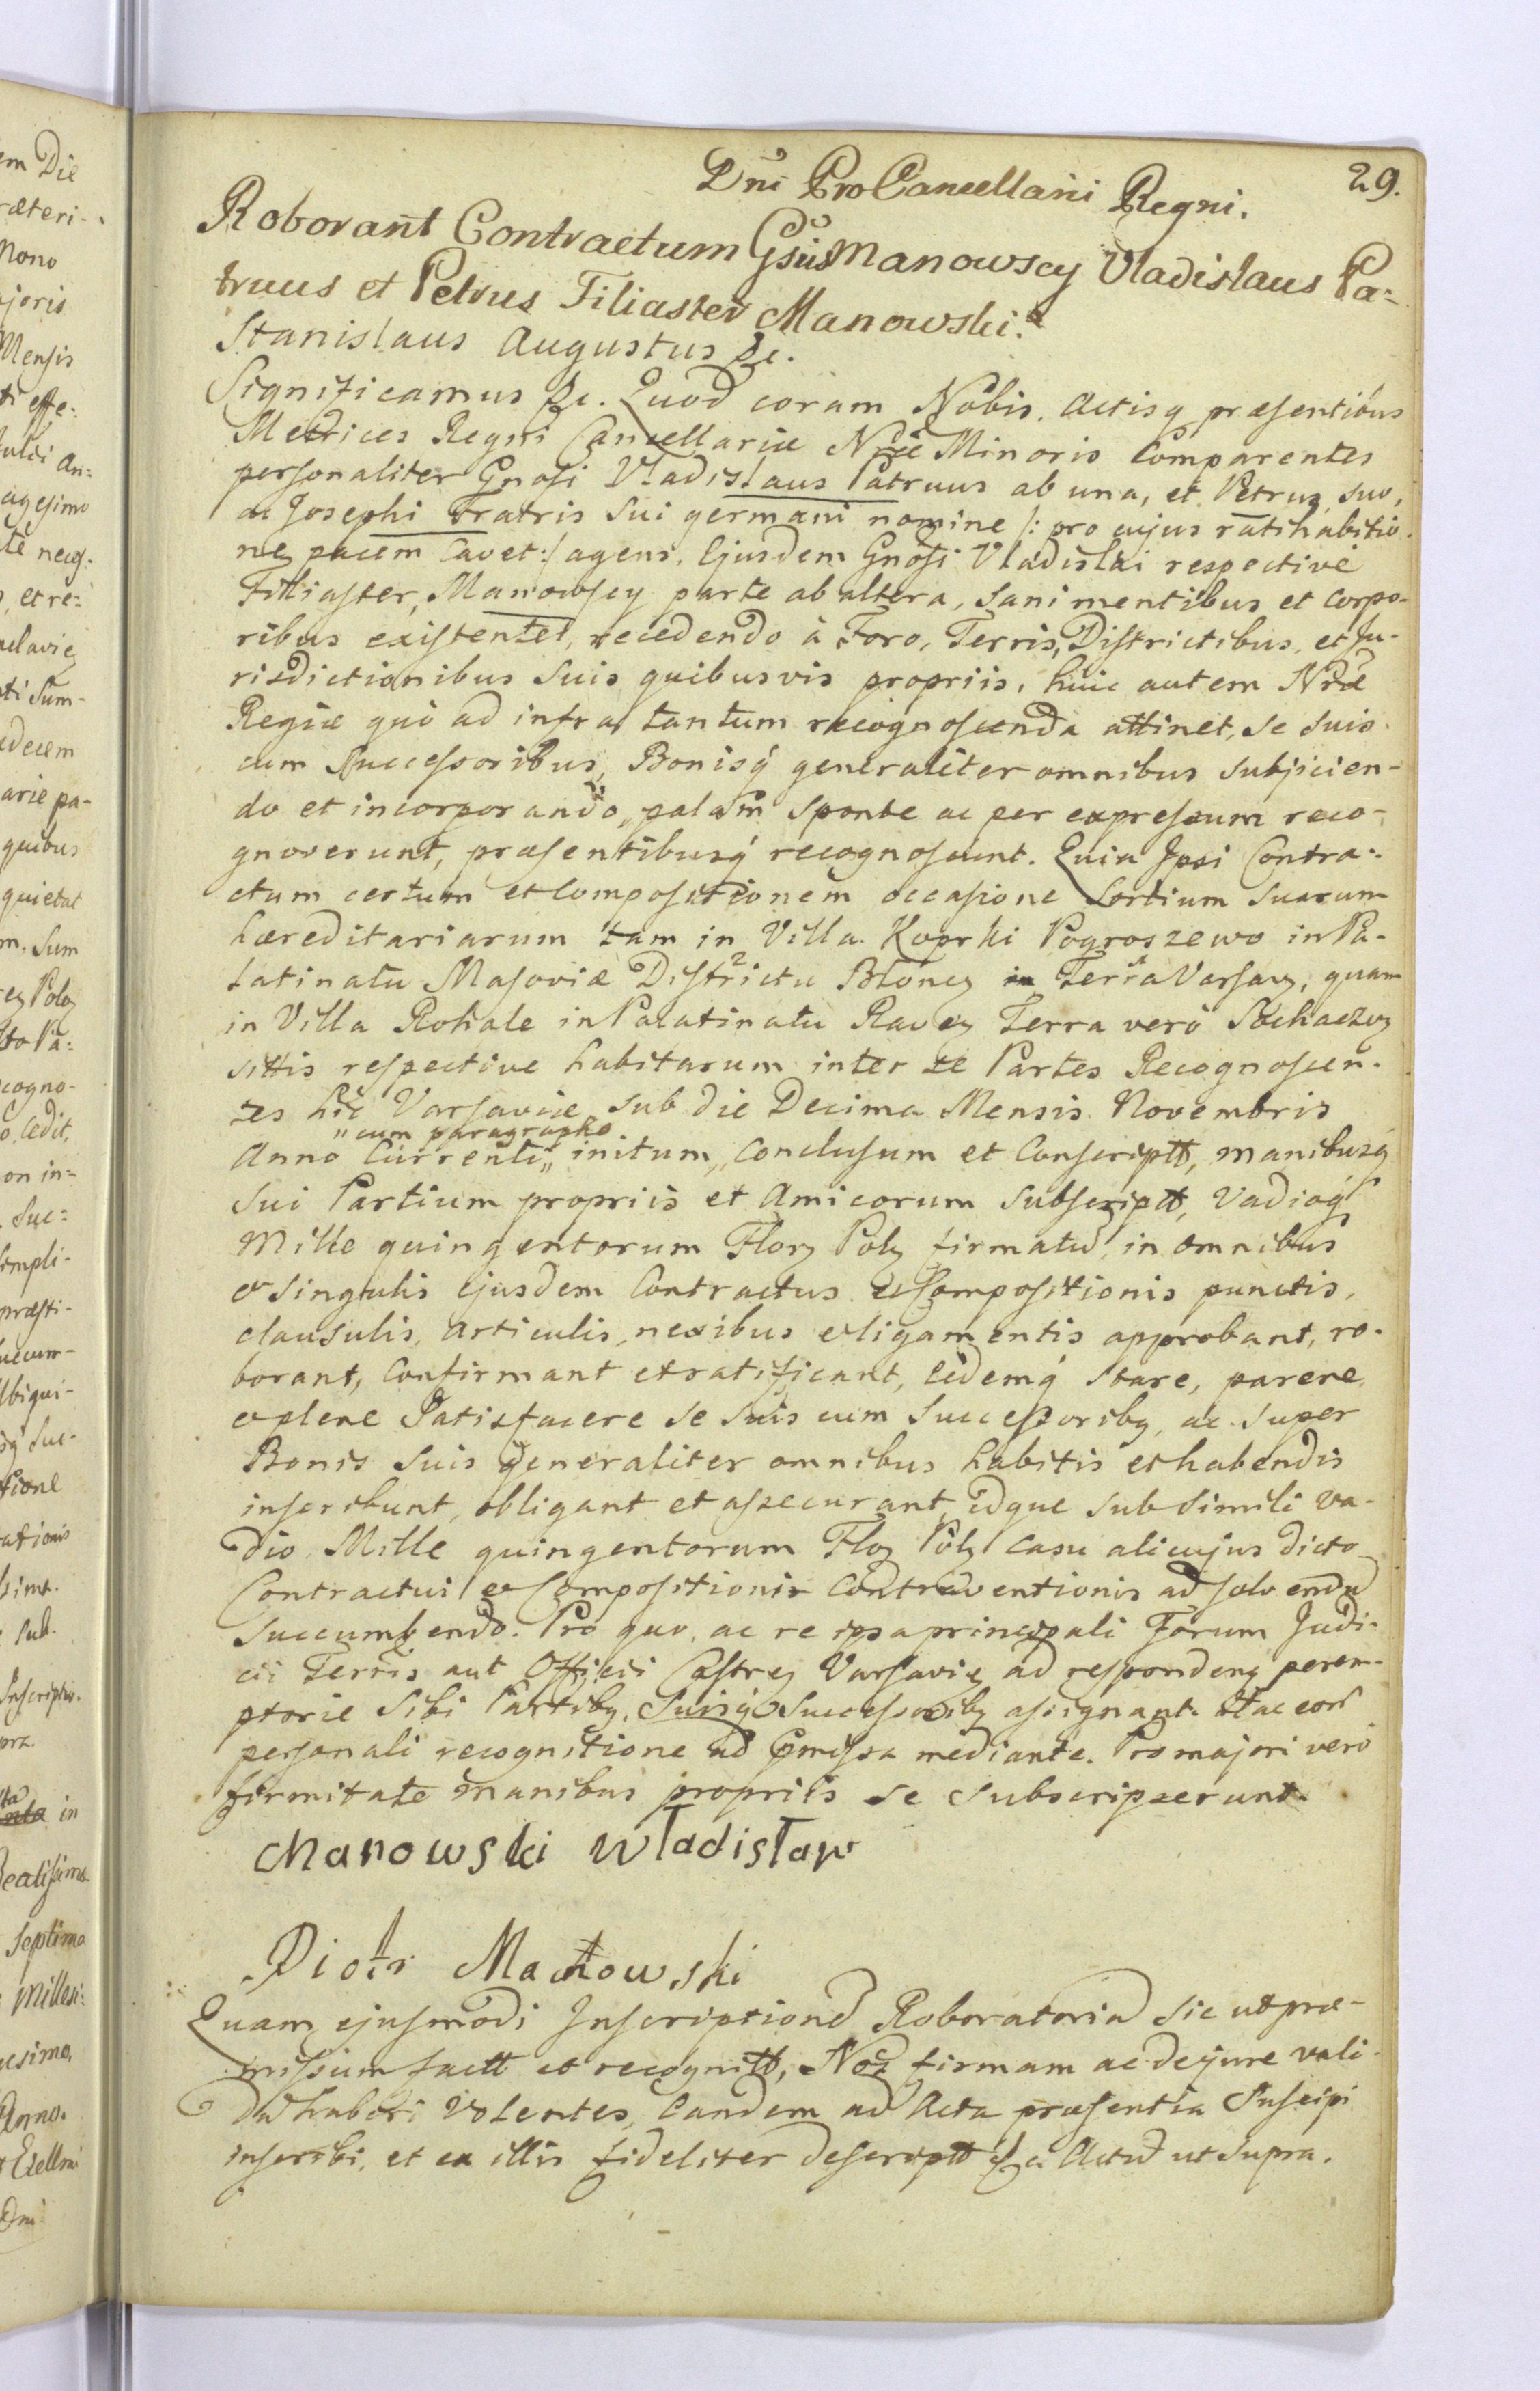 29.
Dni ProCancellarii Regni.
Roborant Contractum Gsus Manowscy Vladislaus Pa-
truus et Petrus Filiaster Manowski.
Stanislaus Augustus &c.
Significamus &c. Quod coram Nobis, Actisq præsentibus
Metrices Regni Cancellariæ Nræ Minoris Comparentes
personaliter Gnosi Vladislaus Patruus ab una, et Petrus, suo,
ac Josephi Fratris sui germani nomine /: pro cujus ratihabitio-
ne pacem cavet :/ agens, Ejusdem Gnosi Vladislai respective
Filiaster, Manowscy parte ab altera, sani mentibus et corpo-
ribus existentes, recedendo à Foro, Terris, Districtibus, et Ju-
risdictionibus suis quibusvis propriis, huic autem Nræ
Regiæ quò ad infra tantum recognoscenda attinet, se suis
cum Successoribus, Bonisq generaliter omnibus subjicien-
do et incorporando, palam sponte ac per expressum reco-
gnoverunt, præsentibusq recognoscunt. Quia Ipsi Contra-
ctum certum et Compositionem occasione Sortium suarum
hæreditariarum tam in Villa Koprki Pogroszewo in Pa-
latinatu Masoviæ Districtu Błoney in Terra Varsav, quam
in Villa Rokale in Palatinatu Raven Terra verò Sochaczv
sittis respective habitarum inter se Partes Recognoscen-
tes hic Varsaviæ sub die Decima Mensis Novembris
„cum paragrapho
Anno Currenti „ initum, Conclusum et Conscriptt, manibusq
sui Partium propriis et Amicorum subscriptt, Vadioq
Mille quingentorum Flor Pol firmatu, in omnibus
et singulis ejusdem Contractus et Compositionis punctis,
clausulis, articulis, nexibus et ligamentis approbant, ro-
borant, Confirmant et ratificant, eidemq stare, parere
et plene satisfacere se suis cum Successoribg, ac super
Bonis suis generaliter omnibus habitis et habendis
inscribunt, obligant et assecurant, idque sub simili va-
dio Mille quingentorum Flor Pol casu alicujus dicto
Contractui et Compositionis Contraventionis ad solvendu
succumbendo. Pro quo, ac re ipsa principali Forum Judi-
cii Terris aut Officii Castren Varsavien ad respondeng perem-
ptorie sibi Partibg, suisq Successoribg assignant. Hac eoru
personali recognitione ad pmissa mediante. Pro majori verò
firmitate manibus propriis se subscripserunt.
Manowski Władisław
Piotr Manowski
Quam ejusmodi Inscriptione Roboratoria sic ut præ-
missum factt et recognitt, Nos firmam ac de jure vali-
da haberi Volentes, Eandem ad Acta præsentia Suscipi
inscribi, et ex illis fideliter descriptt &c Actu ut supra.